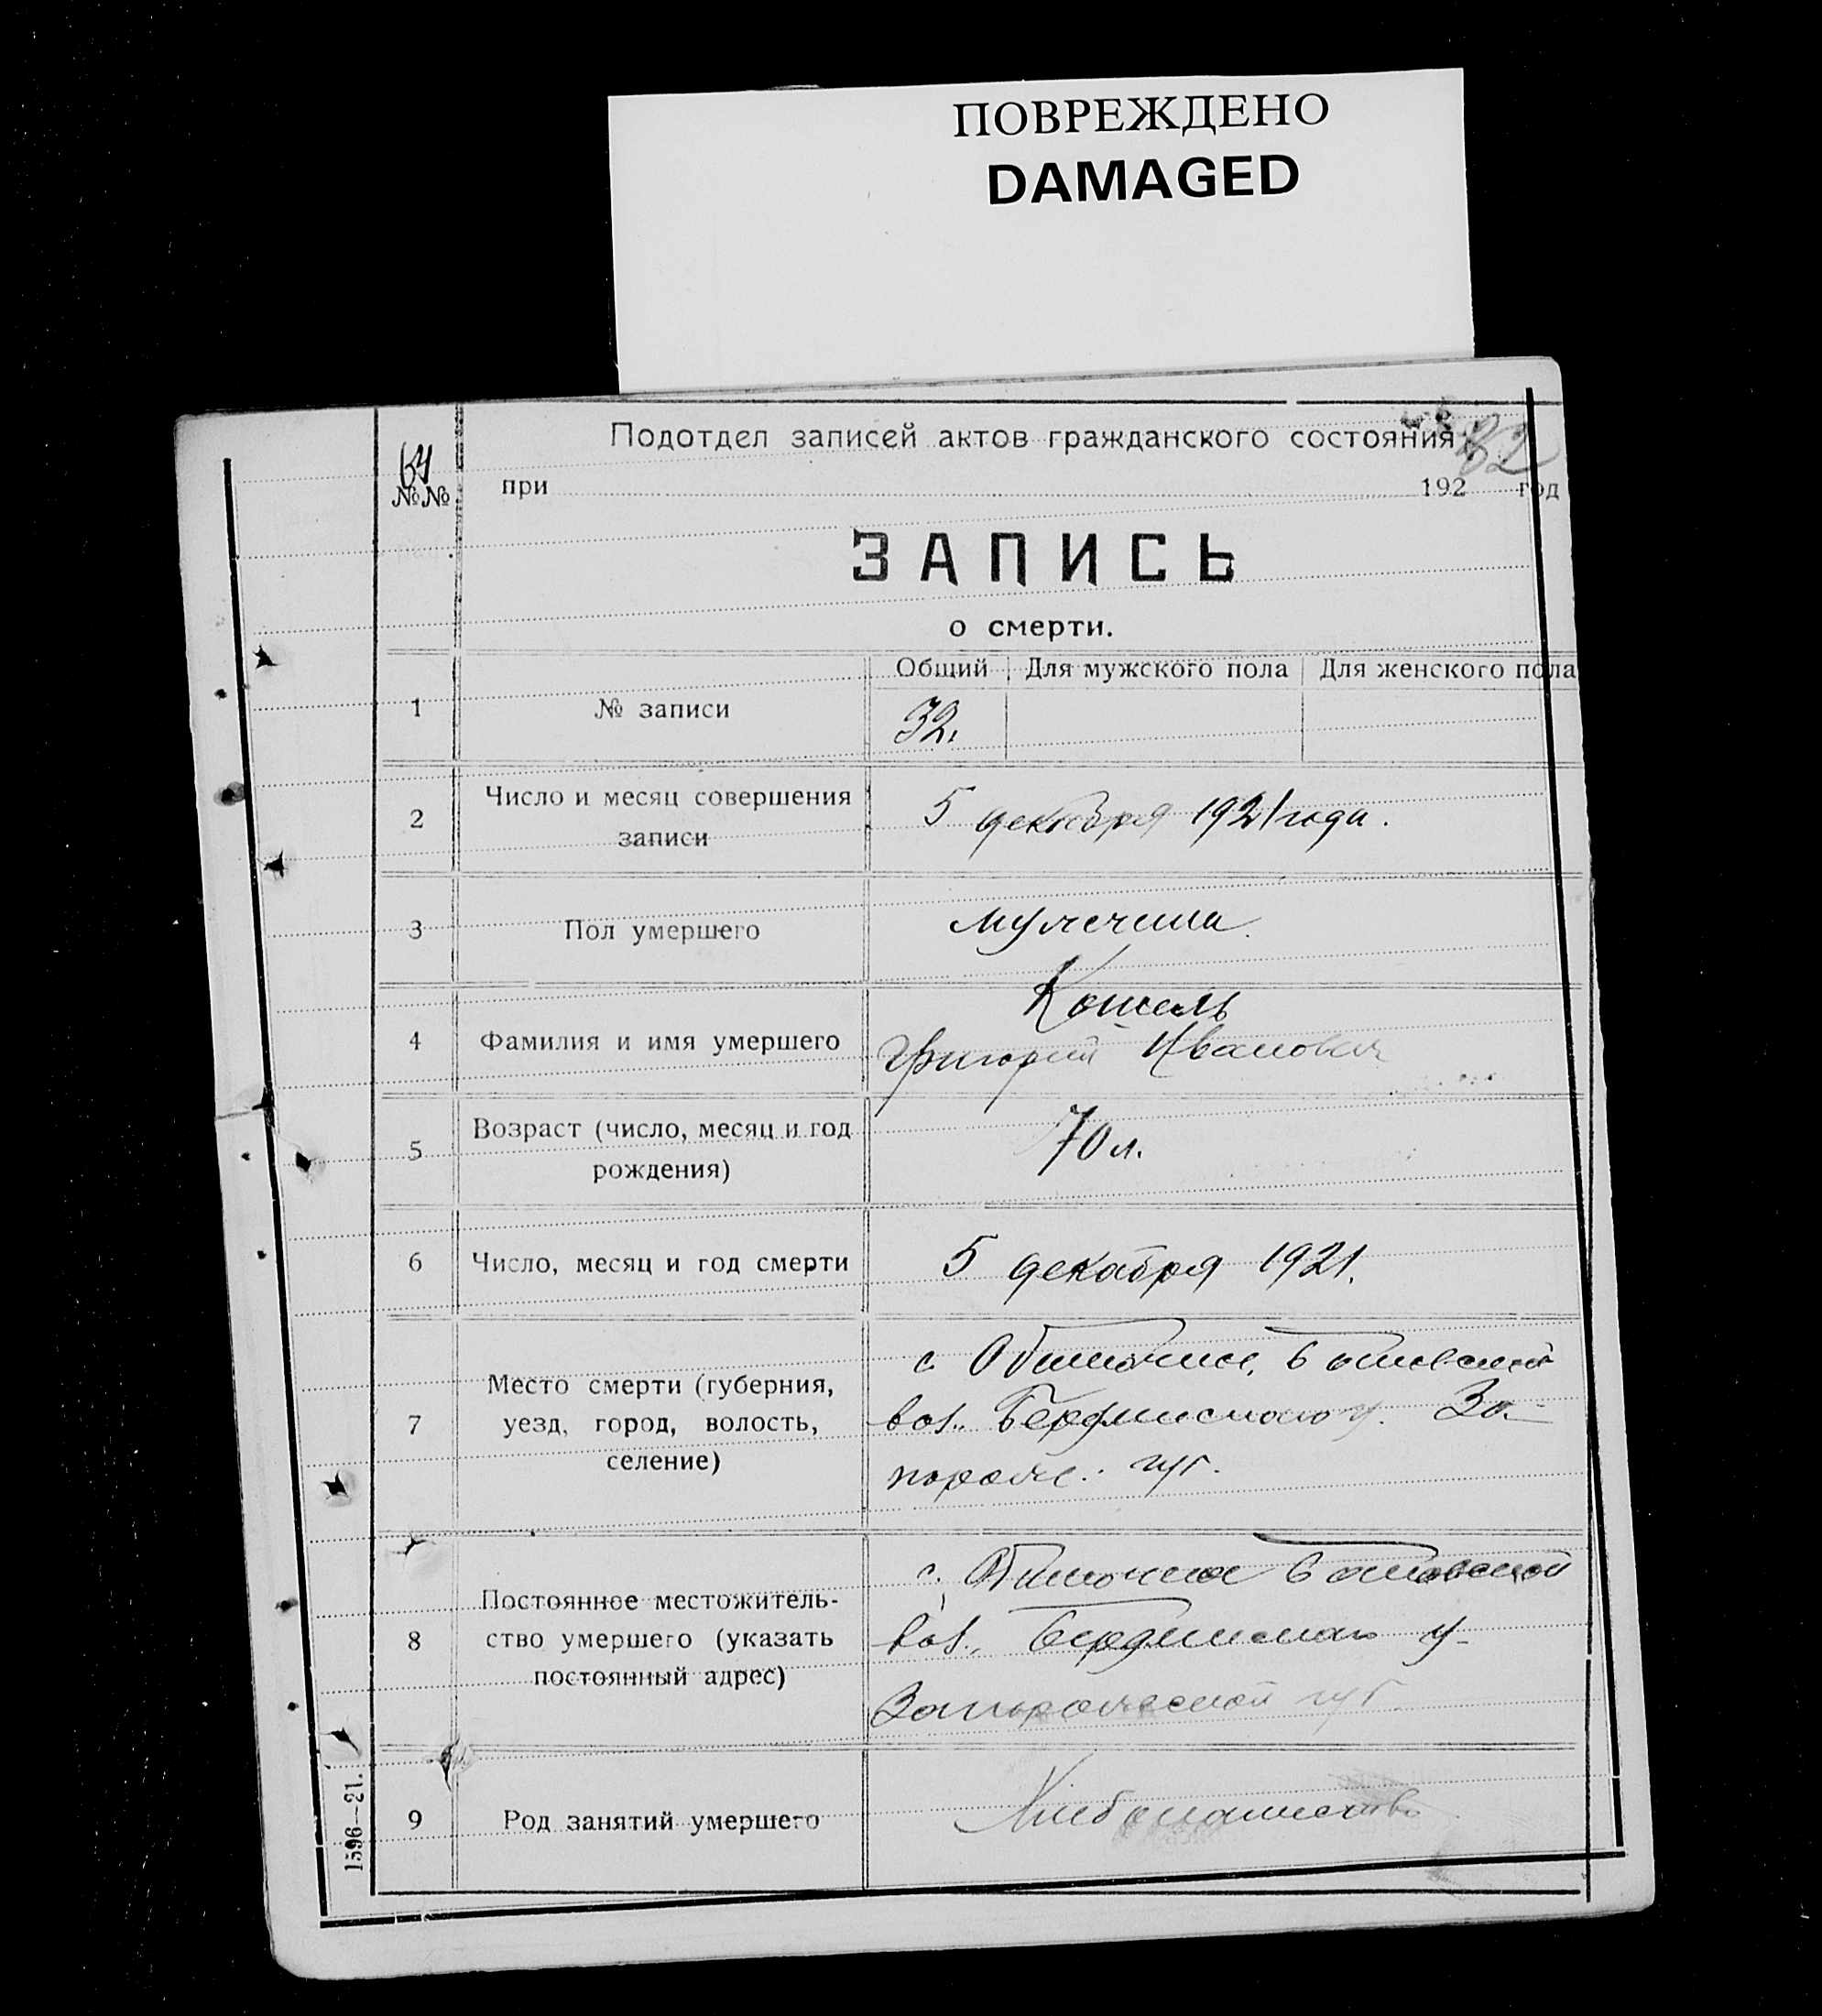 ПОВРЕЖДЕНО
DAMAGED
Подотдел записей актов гражданского состояния
82
64
№№
при 192 год
ЗАПИСЬ
о смерти.
Общий Для мужского пола Для женского пола
1 № записи 32.
2 Число и месяц совершения
записи
5 декабря 1921 года.
3 Пол умершего
мужчина.
4 Фамилия и имя умершего
Кошель
Григорий Иванович
5 Возраст (число, месяц и год
рождения)
70 л.
6 Число, месяц и год смерти 5 декабря 1921.
7 Место смерти (губерния,
уезд, город, волость,
селение)
с. Обиточное,
вол. Бердянского у. За-
порож. губ.
8 Постоянное местожитель-
ство умершего (указать
постоянный адрес)
с. Обиточное
вол., Бердянского у.
Запорожской губ.
9 Род занятий умершего
1596—21.